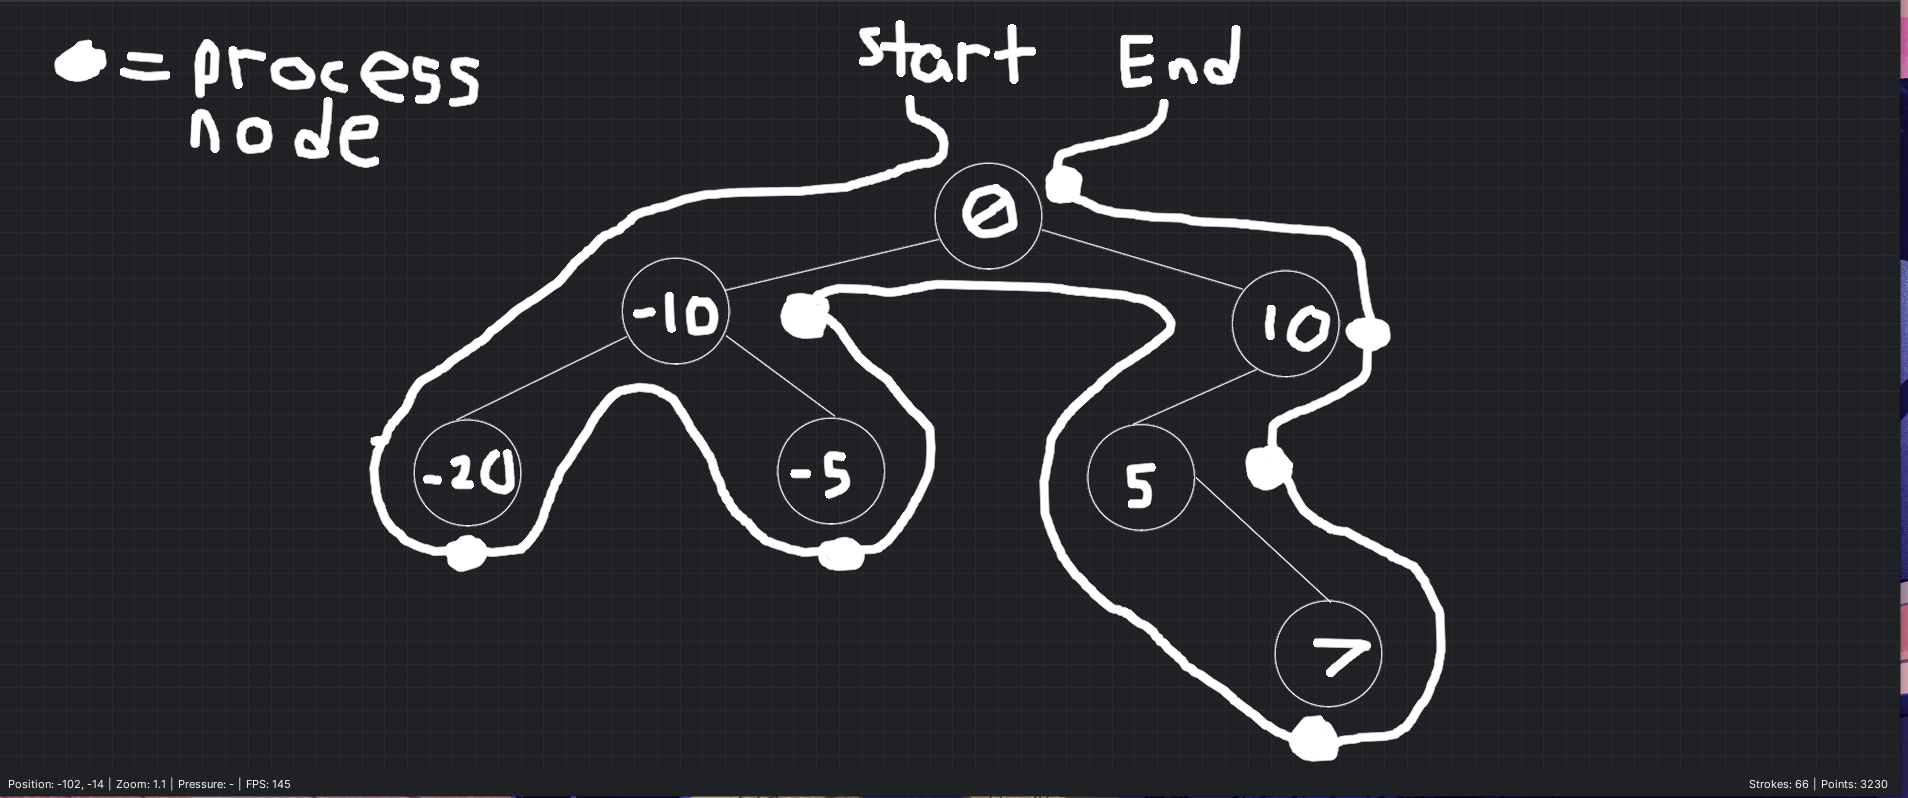 = process
node
start End
0
-10
10
-20
-5
5
7
Position: -102, -14 | Zoom: 1.1 | Pressure: - | FPS: 145
Strokes: 66 | Points: 3230